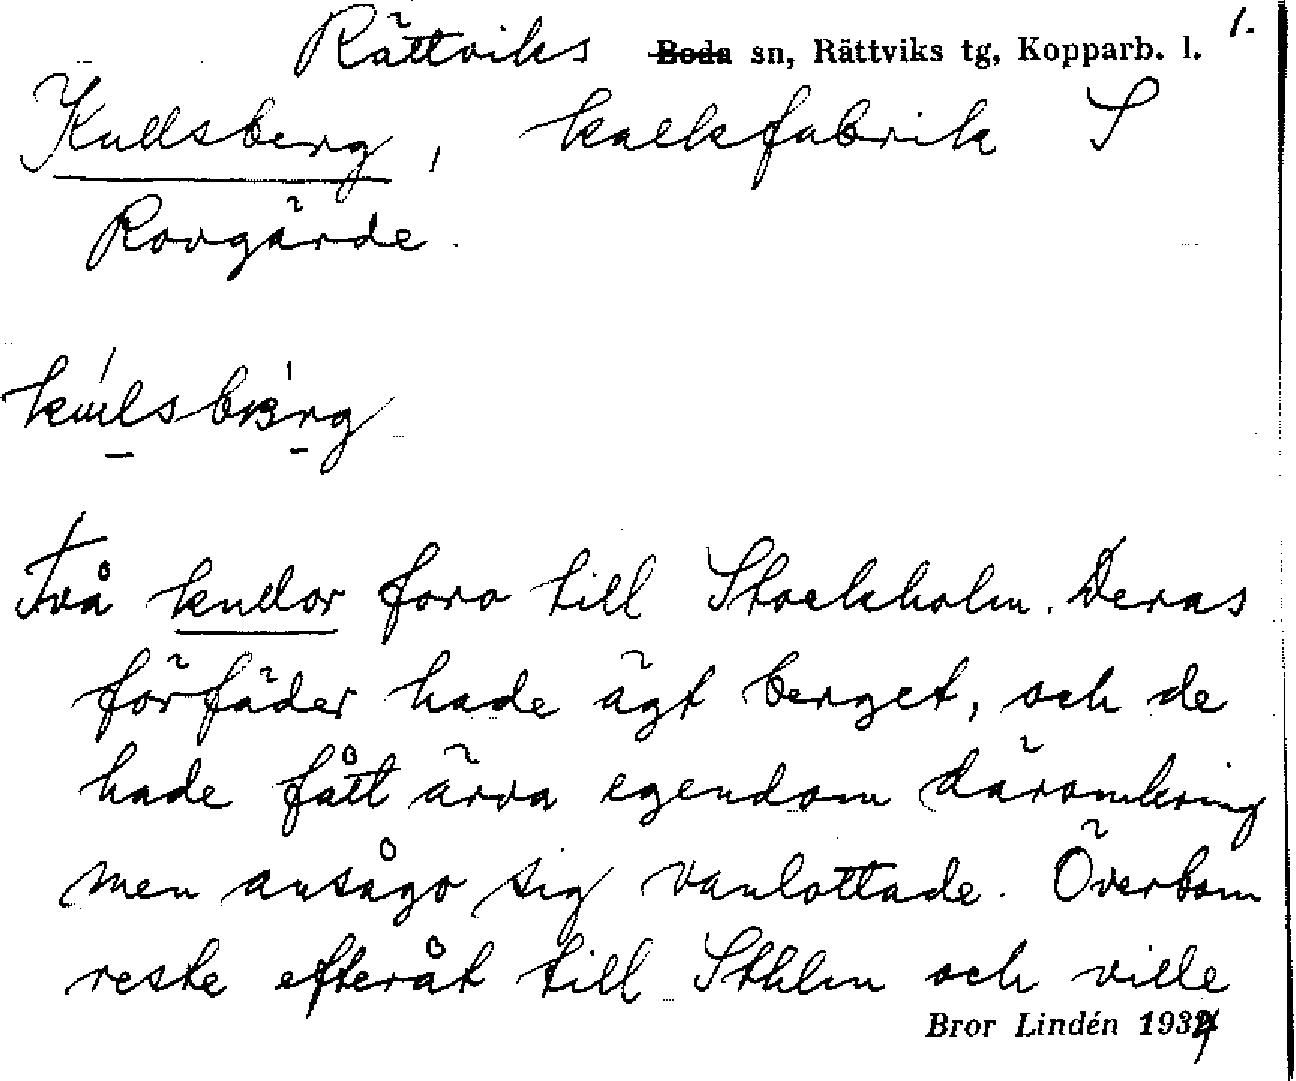 Rättviks Boda sn, Rättviks tg, Kopparb. l. 1.
Kullsberg, kalkfabrik S
Rovgärde.
Två kullor foro till Stockholm. Deras
förfäder hade ägt berget, och de
hade fått ärva egendom däromkring
men ansågo sig vanlottade. Överbom
reste efteråt till Sthlm och ville
Bror Lindén 1934